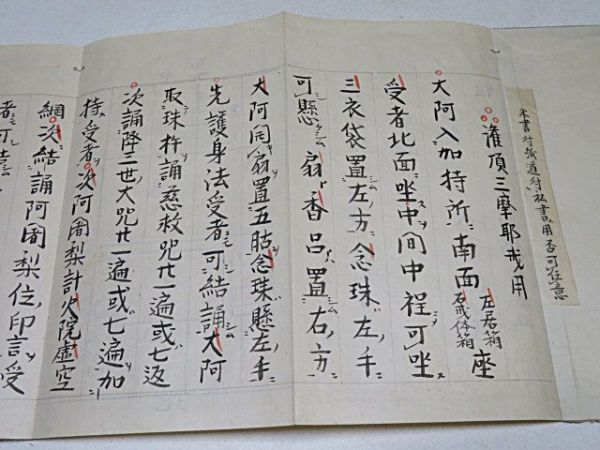 朱書付紙道付 書用否可任意
灌頂三摩耶戒用
大阿入加持所南面 左居箱 右戒体箱 座
受者北面坐中間中程可坐
三衣袋置左ノ方念珠左ノ手ニ
可懸扇香呂置右ノ方
大阿闍扇置五胋念珠懸左ノ手
先護身法受者可結誦大阿
取珠杵誦慈救咒廿一遍或七返
次誦降三世大咒廿一遍或七遍加
持受者次阿闍梨計火院虚空
網次結誦阿闍梨位ノ印言受
者可結